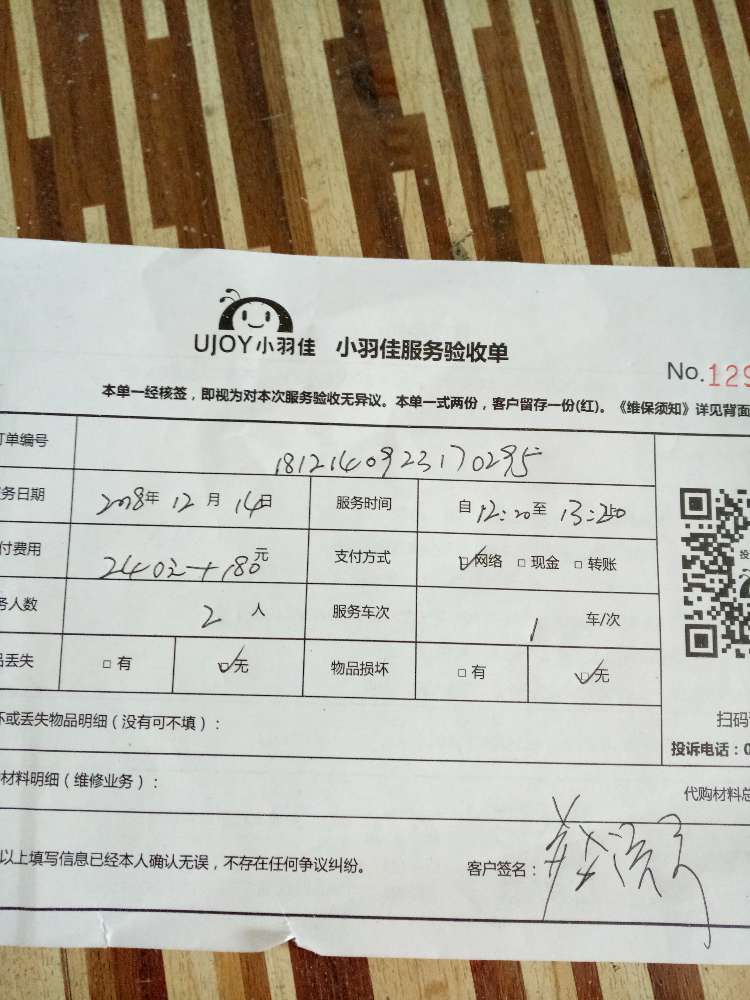 UJOY小羽佳 小羽佳服务验收单
No.129
本单一经核签，即视为对本次服务验收无异议。本单一式两份，客户留存一份(红)。《维保须知》详见背面
订单编号 1812140923170295
务日期 2018年 12 月 14日 服务时间 自12:20至 13:
付费用 240元+180元 支付方式 ☑网络 □现金 □转账
务人数 2 人 服务车次 1 车/次
品丢失 □有 ☑无 物品损坏 □有 ☑无
坏或丢失物品明细（没有可不填）：
扫码
投诉电话：0
材料明细（维修业务）：
代购材料总
以上填写信息已经本人确认无误，不存在任何争议纠纷。 客户签名：